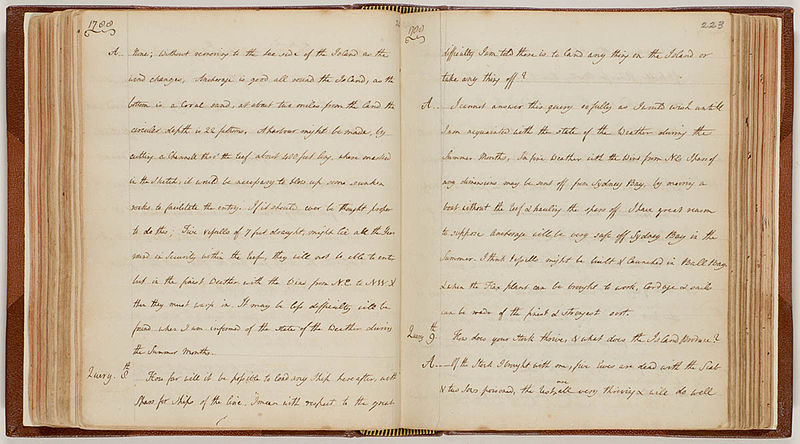 1788
A. time, without removing to the lee side of the Island as the
wind changes, Anchorage is good all round the Island, as the
bottom is a Coral sand, at about two miles from the land the
circular depth is 22 fathoms, A harbour might be made, by
cutting a Channell thro' the reef about 400 feet long, where marked
in the Sketch; it would be necessary to blow up some sunken
rocks to facilitate the entry. If it should ever be thought proper
to do this; Five vessells of 7 feet draught, might lie all the Year
round in Security within the reefs, they will not be able to enter
but in the finest Weather with the Wind from NE to NW &
then they must warp in. It may be less difficulty will be
found when I am informed of the state of the Weather during
the Summer Months.
Query. 8th How far will it be possible to load any Ship hereafter, with
Spars for Ships of the line. I mean with respect to the great
1788
223
difficulty I am told there is to land any thing on the Island or
take any thing off?
A. I cannot answer this query so fully as I could wish untill
I am acquainted with the state of the Weather during the
Summer Months, In fine Weather with the Wind from NE Spars of
any dimensions may be sent off from Sydney Bay, by mooring a
boat without the reef & hauling the spars off. I have great reason
to suppose Anchorage will be very safe off Sydney Bay in the
Summer. I think Vessells might be built & launched in Ball Bay
& when the Flax plant can be brought to work, Cordage & sails
can be made of the finest & Strongest sort.
Query 9.th How does your Stock thrive, & what does the Island produce?
A. Of the Stock I brought with me, five Ewes are dead with the Scab
& two Sows poisoned, the rest are all very thriving & will do well